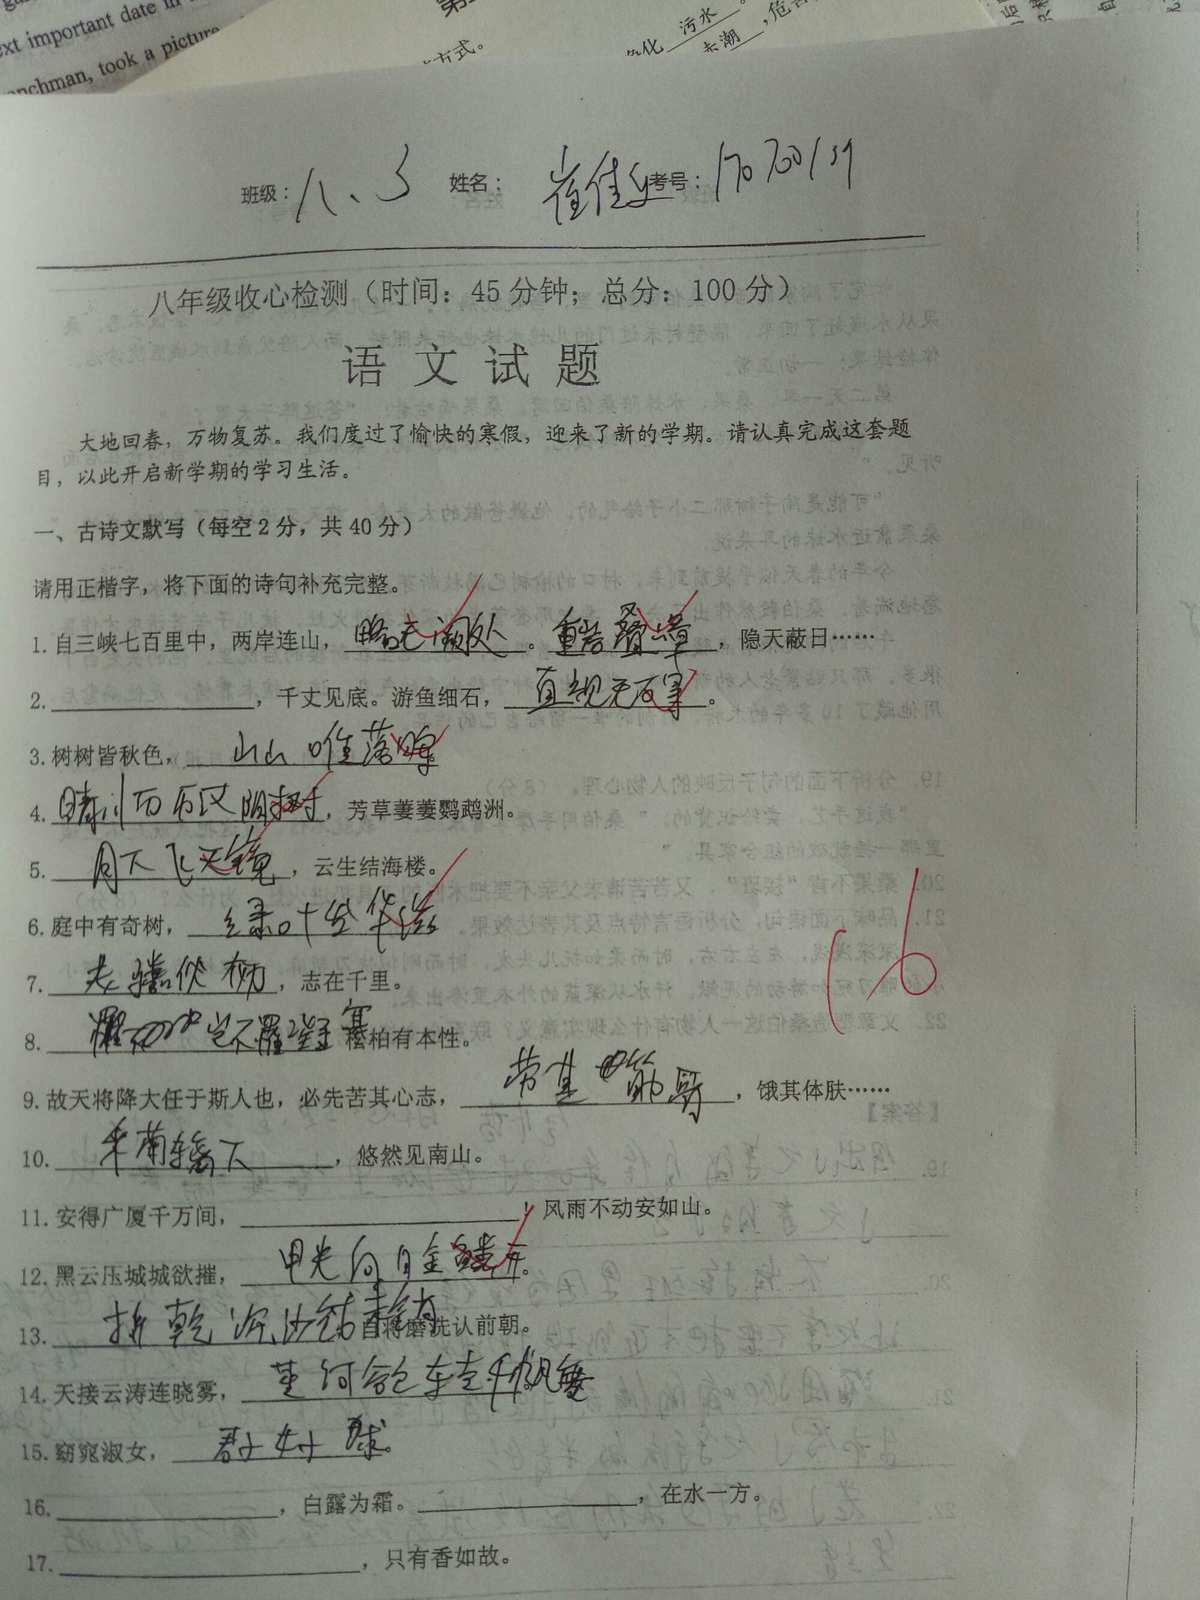 ext important date in
nchman, took a picture
方式。
污水
赤潮
班级：八、3 姓名：崔佳 考号：
八年级收心检测（时间：45分钟；总分：100分）
语文试题
大地回春，万物复苏。我们度过了愉快的寒假，迎来了新的学期。请认真完成这套题
目，以此开启新学期的学习生活。
一、古诗文默写（每空2分，共40分）
请用正楷字，将下面的诗句补充完整。
1. 自三峡七百里中，两岸连山，略无阙处。重岩叠嶂，隐天蔽日……
2. ，千丈见底。游鱼细石，直视无碍。
3. 树树皆秋色，山山唯落晖
4. 晴川历历汉阳树，芳草萋萋鹦鹉洲。
5. 月下飞天镜，云生结海楼。
6. 庭中有奇树，绿叶发华滋
16
7. 老骥伏枥，志在千里。
8. 岂不罹凝寒 松柏有本性。
9. 故天将降大任于斯人也，必先苦其心志，劳其筋骨，饿其体肤……
10. 采菊篱下，悠然见南山。
11. 安得广厦千万间，！风雨不动安如山。
12. 黑云压城城欲摧，甲光向日金鳞开。
13. 折戟沉沙铁未销 自将磨洗认前朝。
14. 天接云涛连晓雾，星河 千帆舞
15. 窈窕淑女，君子好球。
16. ，白露为霜。，在水一方。
17. ，只有香如故。